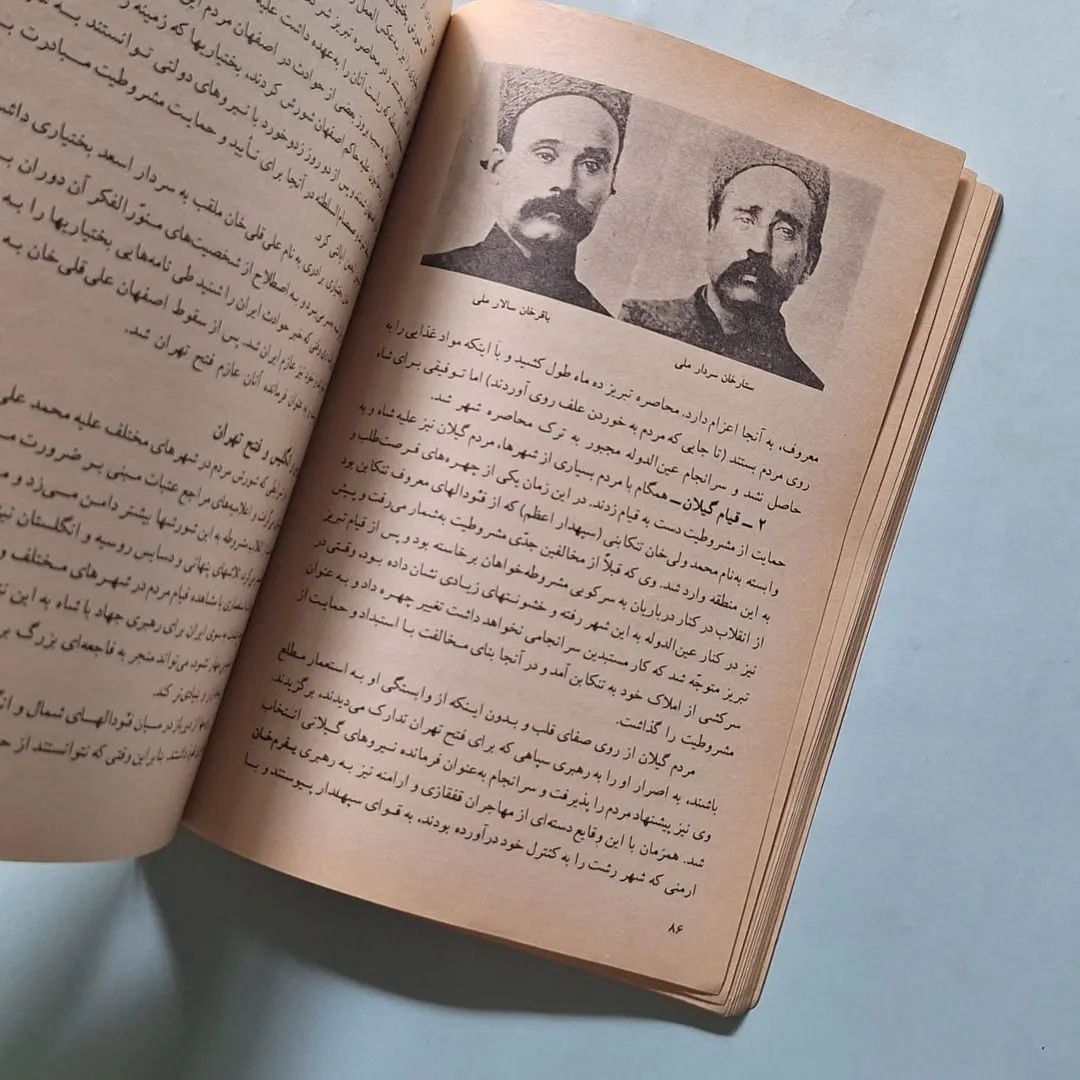 باقرخان سالار ملی
ستارخان سردار ملی
معروف، به آنجا اعزام دارد. محاصره تبریز ده ماه طول کشید و با اینکه مواد غذایی را به
روی مردم بستند (تا جایی که مردم به خوردن علف روی آوردند) اما توفیقی برای شاه
حاصل نشد و سرانجام عین‌الدوله مجبور به ترک محاصره شهر شد.
۲ ــ قیام گیلان ــ همگام با مردم بسیاری از شهرها، مردم گیلان نیز علیه شاه و به
حمایت از مشروطیت دست به قیام زدند. در این زمان یکی از چهره‌های فرصت‌طلب و
وابسته به‌نام محمد ولی‌خان تنکابنی (سپهدار اعظم) که از فئودالهای معروف تنکابن بود
به این منطقه وارد شد. وی که قبلاً از مخالفین جدّی مشروطیت به‌شمار می‌رفت و پیش
از انقلاب در کنار درباریان به سرکوبی مشروطه‌خواهان برخاسته بود و پس از قیام تبریز
نیز در کنار عین‌الدوله به این شهر رفته و خشونتهای زیادی نشان داده بود، وقتی در
تبریز متوجّه شد که کار مستبدین سرانجامی نخواهد داشت تغییر چهره داد و به عنوان
سرکشی از املاک خود به تنکابن آمد و در آنجا بنای مخالفت با استبداد و حمایت از
مشروطیت را گذاشت.
مردم گیلان از روی صفای قلب و بدون اینکه از وابستگی او به استعمار مطلع
باشند، به اصرار او را به رهبری سپاهی که برای فتح تهران تدارک می‌دیدند، برگزیدند.
وی نیز پیشنهاد مردم را پذیرفت و سرانجام به‌عنوان فرمانده نیروهای گیلانی انتخاب
شد. همزمان با این وقایع دسته‌ای از مهاجران قفقازی و ارامنه نیز به رهبری یفرم‌خان
ارمنی که شهر رشت را به کنترل خود درآورده بودند، به قوای سپهدار پیوستند و با
۸۶
در محاصره تبریز
ریاست آنان را به‌عهده داشت علیه
بروز بعضی از حوادث در اصفهان مردم این
حاکم اصفهان شورش کردند، بختیاریها که زمینه را
و پس از دو روز زدوخورد با نیروهای دولتی توانستند به
در آنجا برای تأیید و حمایت مشروطیت مبادرت
کرد.
برادری به نام علی قلی‌خان ملقب به سردار اسعد بختیاری داشت
به اصطلاح از شخصیت‌های منوّرالفکر آن دوران
وقتی که خبر حوادث ایران را شنید طی نامه‌هایی بختیاریها را به
نیز عازم ایران شد. پس از سقوط اصفهان علی قلی خان به
به عنوان فرمانده آنان عازم فتح تهران شد.
انگلیس و فتح تهران
که شورش مردم در شهرهای مختلف علیه محمد علی
و اعلامیه‌های مراجع عتبات مبنی بر ضرورت
مشروطه به این شورشها بیشتر دامن می‌زد و
تلاشهای پنهانی و دسایس روسیه و انگلستان نیز
با مشاهده قیام مردم در شهرهای مختلف و
سوی ایران برای رهبری جهاد با شاه به این
مهار نشود، می‌تواند منجر به فاجعه‌ای بزرگ
و بنیادی‌تر کند.
از دیرباز در میان فئودالهای شمال و
داشتند. بنابراین وقتی که نتوانستند از